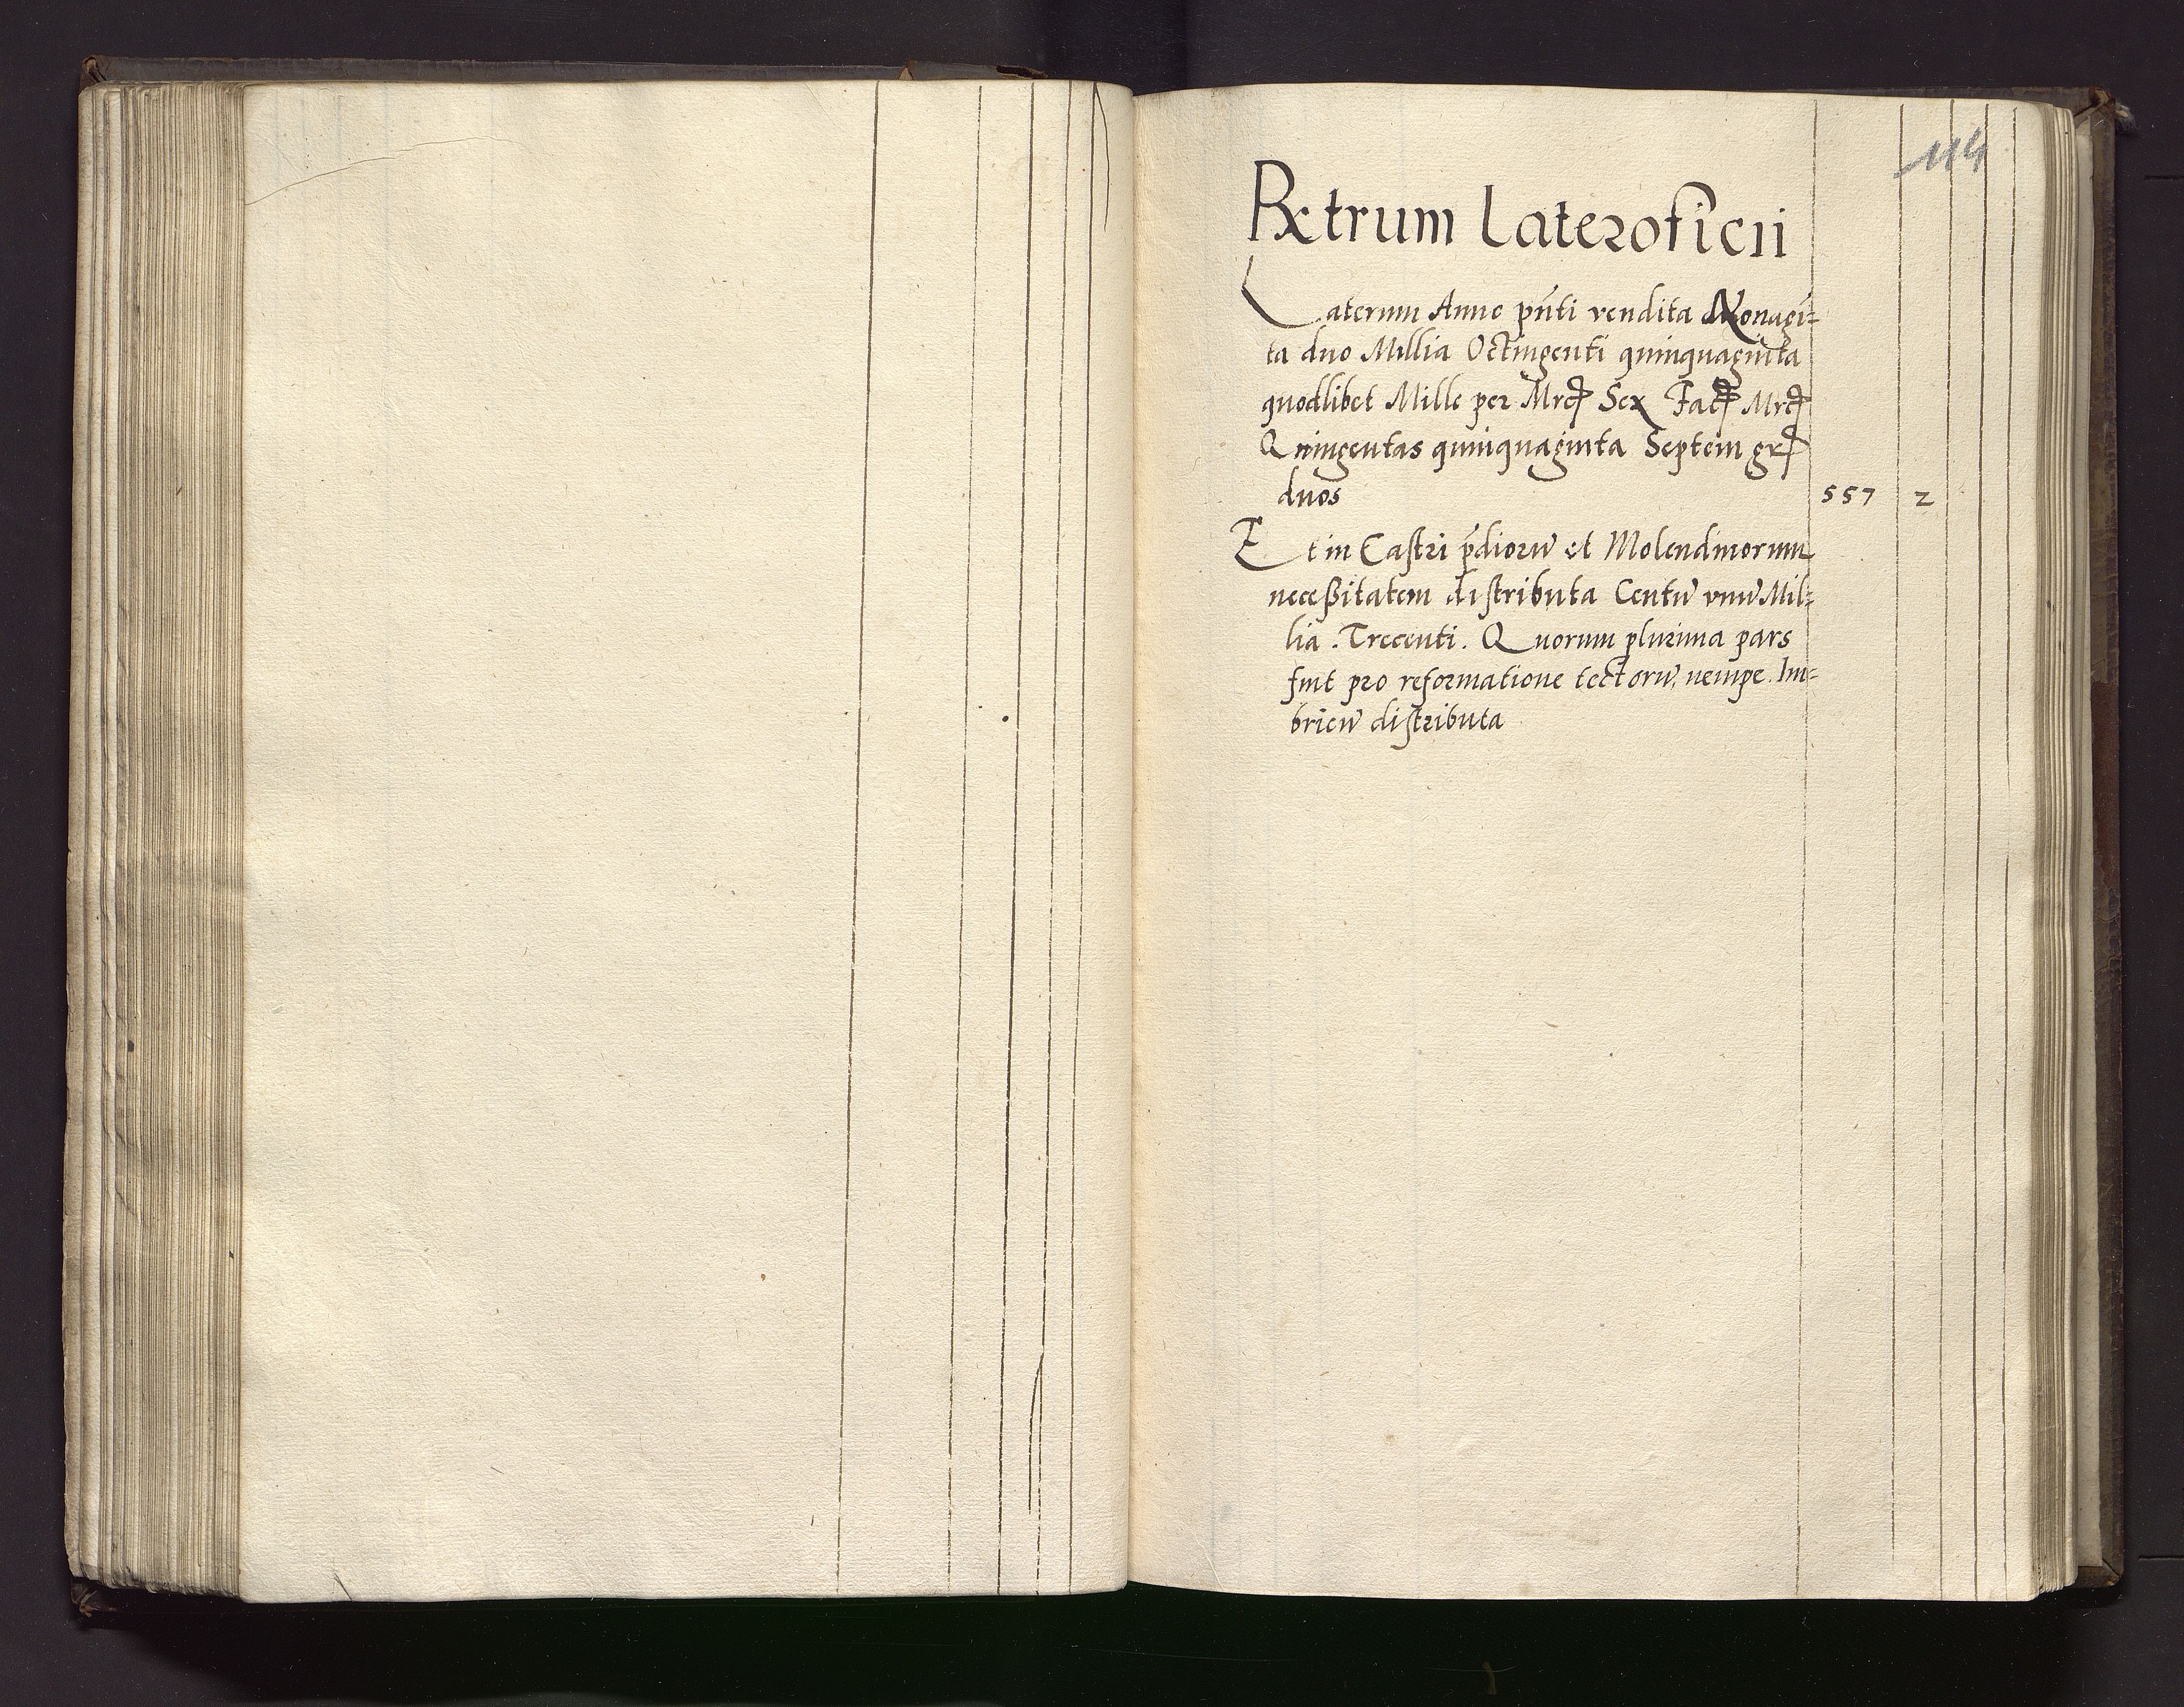 114
Rxtrum Lateroficii
Laterum Anno pñti vendita Nonagi=
ta duo Millia Octingenti quinquaginta
quodlibet Mille per Mrcꝭ Sex Facꝭ Mrcꝭ
Quingentas quinquaginta Septem grꝭ
duos 557 2
Et in Castri p̄dioru̇ et Molendinorum
neceßitatem distributa Centu̇ vnu̇ Mil=
lia . Trecenti . Quorum plurima pars
sint pro reformatione tectoru̇, nempe . Im=
bricu̇ distributa